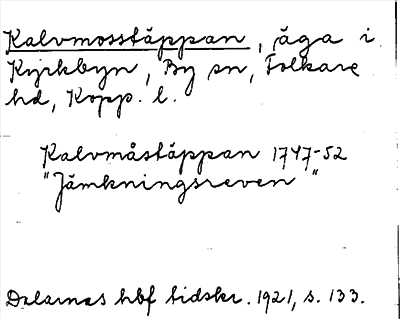 Kalvmosstäppan, äga i
Kyrkbyn, By sn, Folkare
hd, Kopp. l.
Kalvmåstäppan 1747-52
"Jämkningsreven"
Dalarnas hbf tidskr. 1921, s. 133.